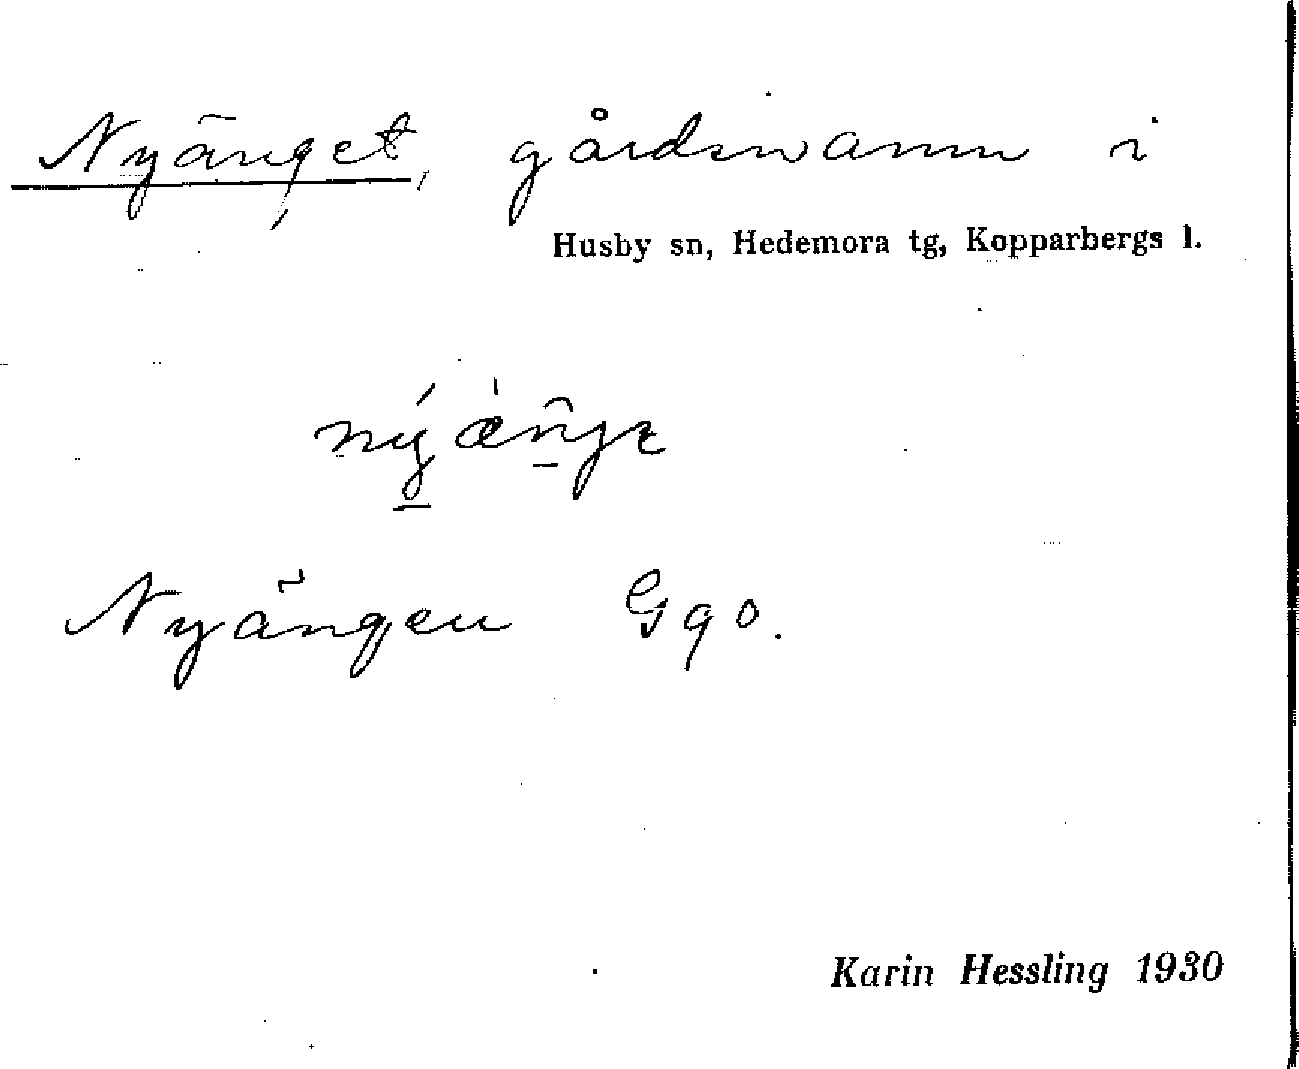 Nyänget, gårdsnamn i
Husby sn, Hedemora tg, Kopparbergs l.
Nyängen Ggo.
Karin Hessling 1930